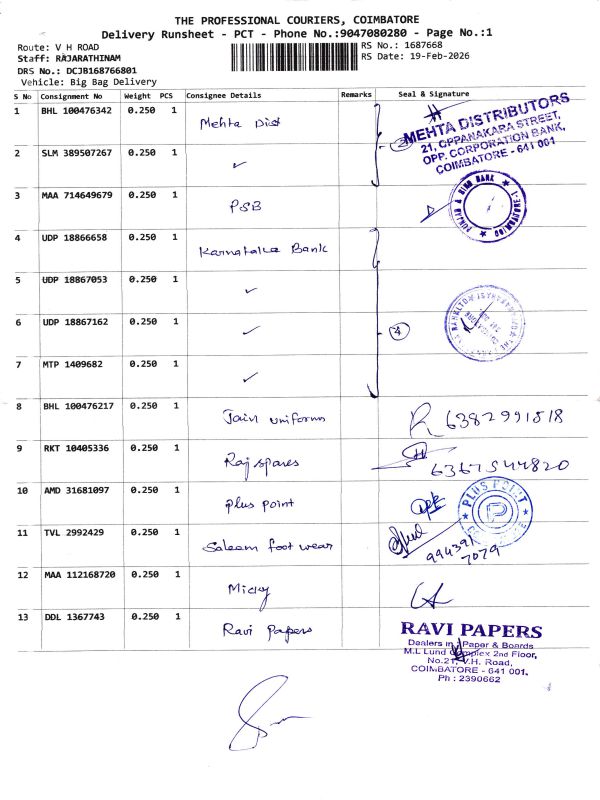 THE PROFESSIONAL COURIERS, COIMBATORE
Delivery Runsheet - PCT - Phone No.:9047080280 - Page No.:1
Route: V H ROAD
RS No.: 1687668
Staff: RAJARATHINAM
RS Date: 19-Feb-2026
DRS No.: DCJB168766801
Vehicle: Big Bag Delivery
S No Consignment No Weight PCS Consignee Details Remarks Seal & Signature
1 BHL 100476342 0.250 1 Mehta Dist
MEHTA DISTRIBUTORS
21, OPPANAKARA STREET,
OPP. CORPORATION BANK,
COIMBATORE - 641 001
2 SLM 389507267 0.250 1 ✓
3 MAA 714649679 0.250 1 PSB
PUNJAB & SIND BANK
COIMBATORE-1
4 UDP 18866658 0.250 1 Karnataka Bank
5 UDP 18867053 0.250 1 ✓
6 UDP 18867162 0.250 1 ✓ 4
7 MTP 1409682 0.250 1 ✓
8 BHL 100476217 0.250 1 Jain uniforms 6382991818
9 RKT 10405336 0.250 1 Raj spares 6367544820
10 AMD 31681097 0.250 1 plus point
PLUS POINT
11 TVL 2992429 0.250 1 Saleem foot wear 994391
7079
12 MAA 112168720 0.250 1 Micky
13 DDL 1367743 0.250 1 Ravi Papers
RAVI PAPERS
Dealers in : Paper & Boards
M.L Lund Complex 2nd Floor,
No.21, V.H. Road,
COIMBATORE - 641 001.
Ph : 2390662